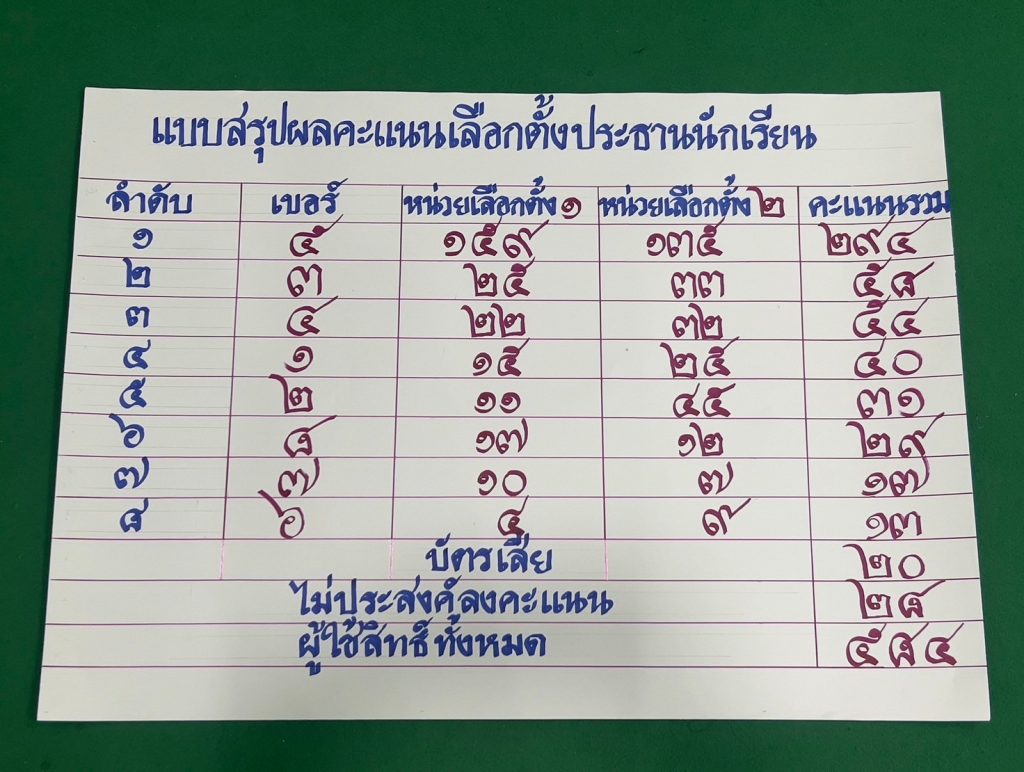 แบบสรุปผลคะแนนเลือกตั้งประธานนักเรียน
ลำดับ เบอร์ หน่วยเลือกตั้ง ๑ หน่วยเลือกตั้ง ๒ คะแนนรวม
๑ ๕ ๑๕๙ ๑๓๕ ๒๙๔
๒ ๓ ๒๕ ๓๓ ๕๘
๓ ๔ ๒๒ ๓๒ ๕๔
๔ ๑ ๑๕ ๒๕ ๔๐
๕ ๒ ๑๑ ๔๕ ๓๑
๖ ๘ ๑๗ ๑๒ ๒๙
๗ ๗ ๑๐ ๗ ๑๗
๘ ๖ ๔ ๙ ๑๓
บัตรเสีย ๒๐
ไม่ประสงค์ลงคะแนน ๒๘
ผู้ใช้สิทธิ์ทั้งหมด ๕๘๔